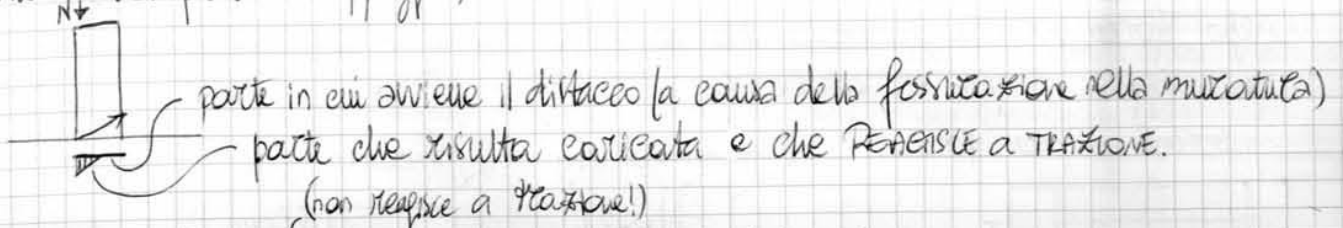 N
parte in cui avviene il distacco (a causa della fessurazione nella muratura)
parte che risulta caricata e che REAGISCE a TRAZIONE.
(non reagisce a trazione!)